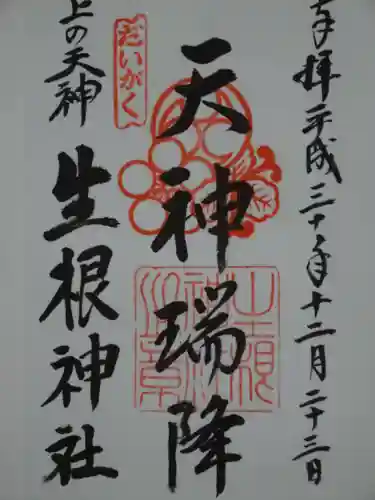 奉拝 平成三十年十二月二十三日
天神瑞降
だいがく
上の天神
生根神社
生根神社